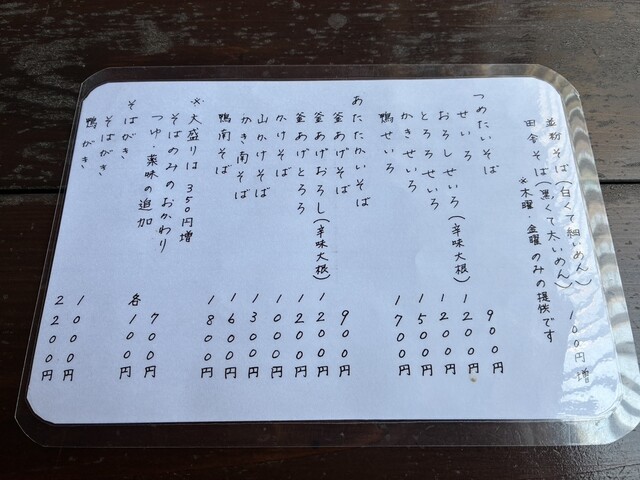 並粉そば(白くて細いめん)
田舎そば(黒くて太いめん) 100円増
※木曜・金曜のみの提供です
つめたいそば
せいろ 900円
おろしせいろ(辛味大根) 1200円
とろろせいろ 1200円
かきせいろ 1500円
鴨せいろ 1700円
あたたかいそば
釜あげそば 900円
釜あげおろし(辛味大根) 1200円
釜あげとろろ 1200円
かけそば 1000円
山かけそば 1300円
かき南そば 1600円
鴨南そば 1800円
※大盛りは 350円増
そばのみのおかわり 700円
つゆ、薬味の追加 各100円
そばがき
そばがき 1000円
鴨がき 2200円